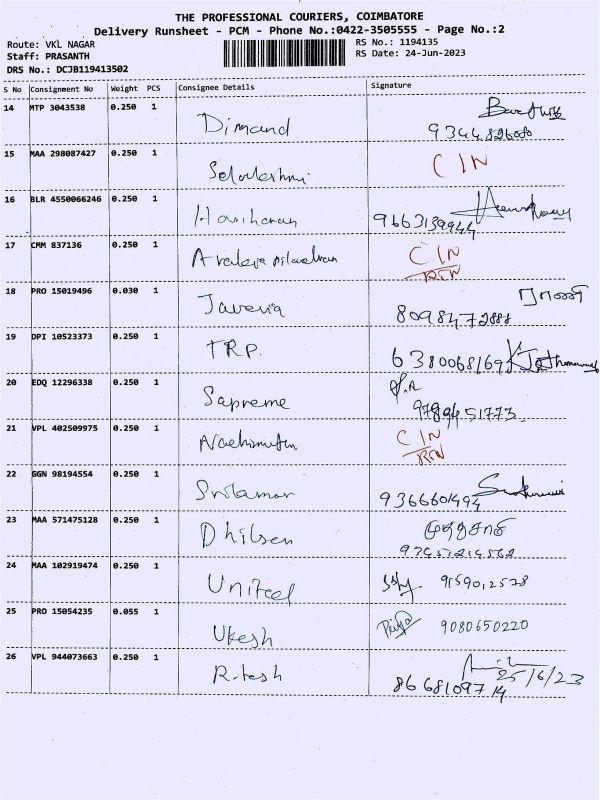 THE PROFESSIONAL COURIERS, COIMBATORE
Delivery Runsheet - PCM - Phone No.:0422-3505555 - Page No.:2
Route: VKL NAGAR
RS No.: 1194135
Staff: PRASANTH
RS Date: 24-Jun-2023
DRS No.: DCJB119413502
S No Consignment No Weight PCS Consignee Details Signature
14 MTP 3043538 0.250 1
Dimand
15 MAA 298087427 0.250 1
CIN
16 BLR 4550066246 0.250 1
Hariharan
9663139944
17 CMM 837136 0.250 1
CIN
RTN
18 PRO 15019496 0.030 1
Javeria
8098472888
19 DPI 10523373 0.250 1
TRP.
6380068169
20 EDQ 12296338 0.250 1
Sapreme
21 VPL 402509975 0.250 1
CIN
RTN
22 GGN 98194554 0.250 1
9366601494
23 MAA 571475128 0.250 1
Dhilsen
24 MAA 102919474 0.250 1
United 9159012578
25 PRO 15054235 0.055 1
Ukesh 9080650220
26 VPL 944073663 0.250 1
Ritesh 25/6/23
8668109714